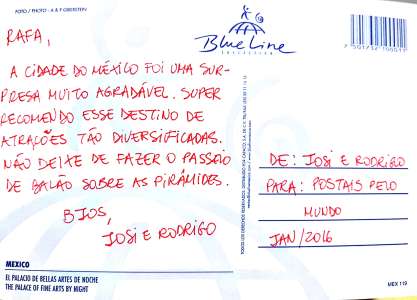 FOTO / PHOTO - A & P OBERSTEIN
Blue Line
COLLECTION
RAFA,
A CIDADE DO MÉXICO FOI UMA SUR-
PRESA MUITO AGRADÁVEL. SUPER
RECOMENDO ESSE DESTINO DE
ATRAÇÕES TÃO DIVERSIFICADAS.
NÃO DEIXE DE FAZER O PASSEIO
DE BALÃO SOBRE AS PIRÂMIDES.
BJOS,
JOSI E RODRIGO
DE: JOSI E RODRIGO
PARA: POSTAIS PELO
MUNDO
JAN/2016
MEXICO
EL PALACIO DE BELLAS ARTES DE NOCHE
THE PALACE OF FINE ARTS BY NIGHT
MEX 119